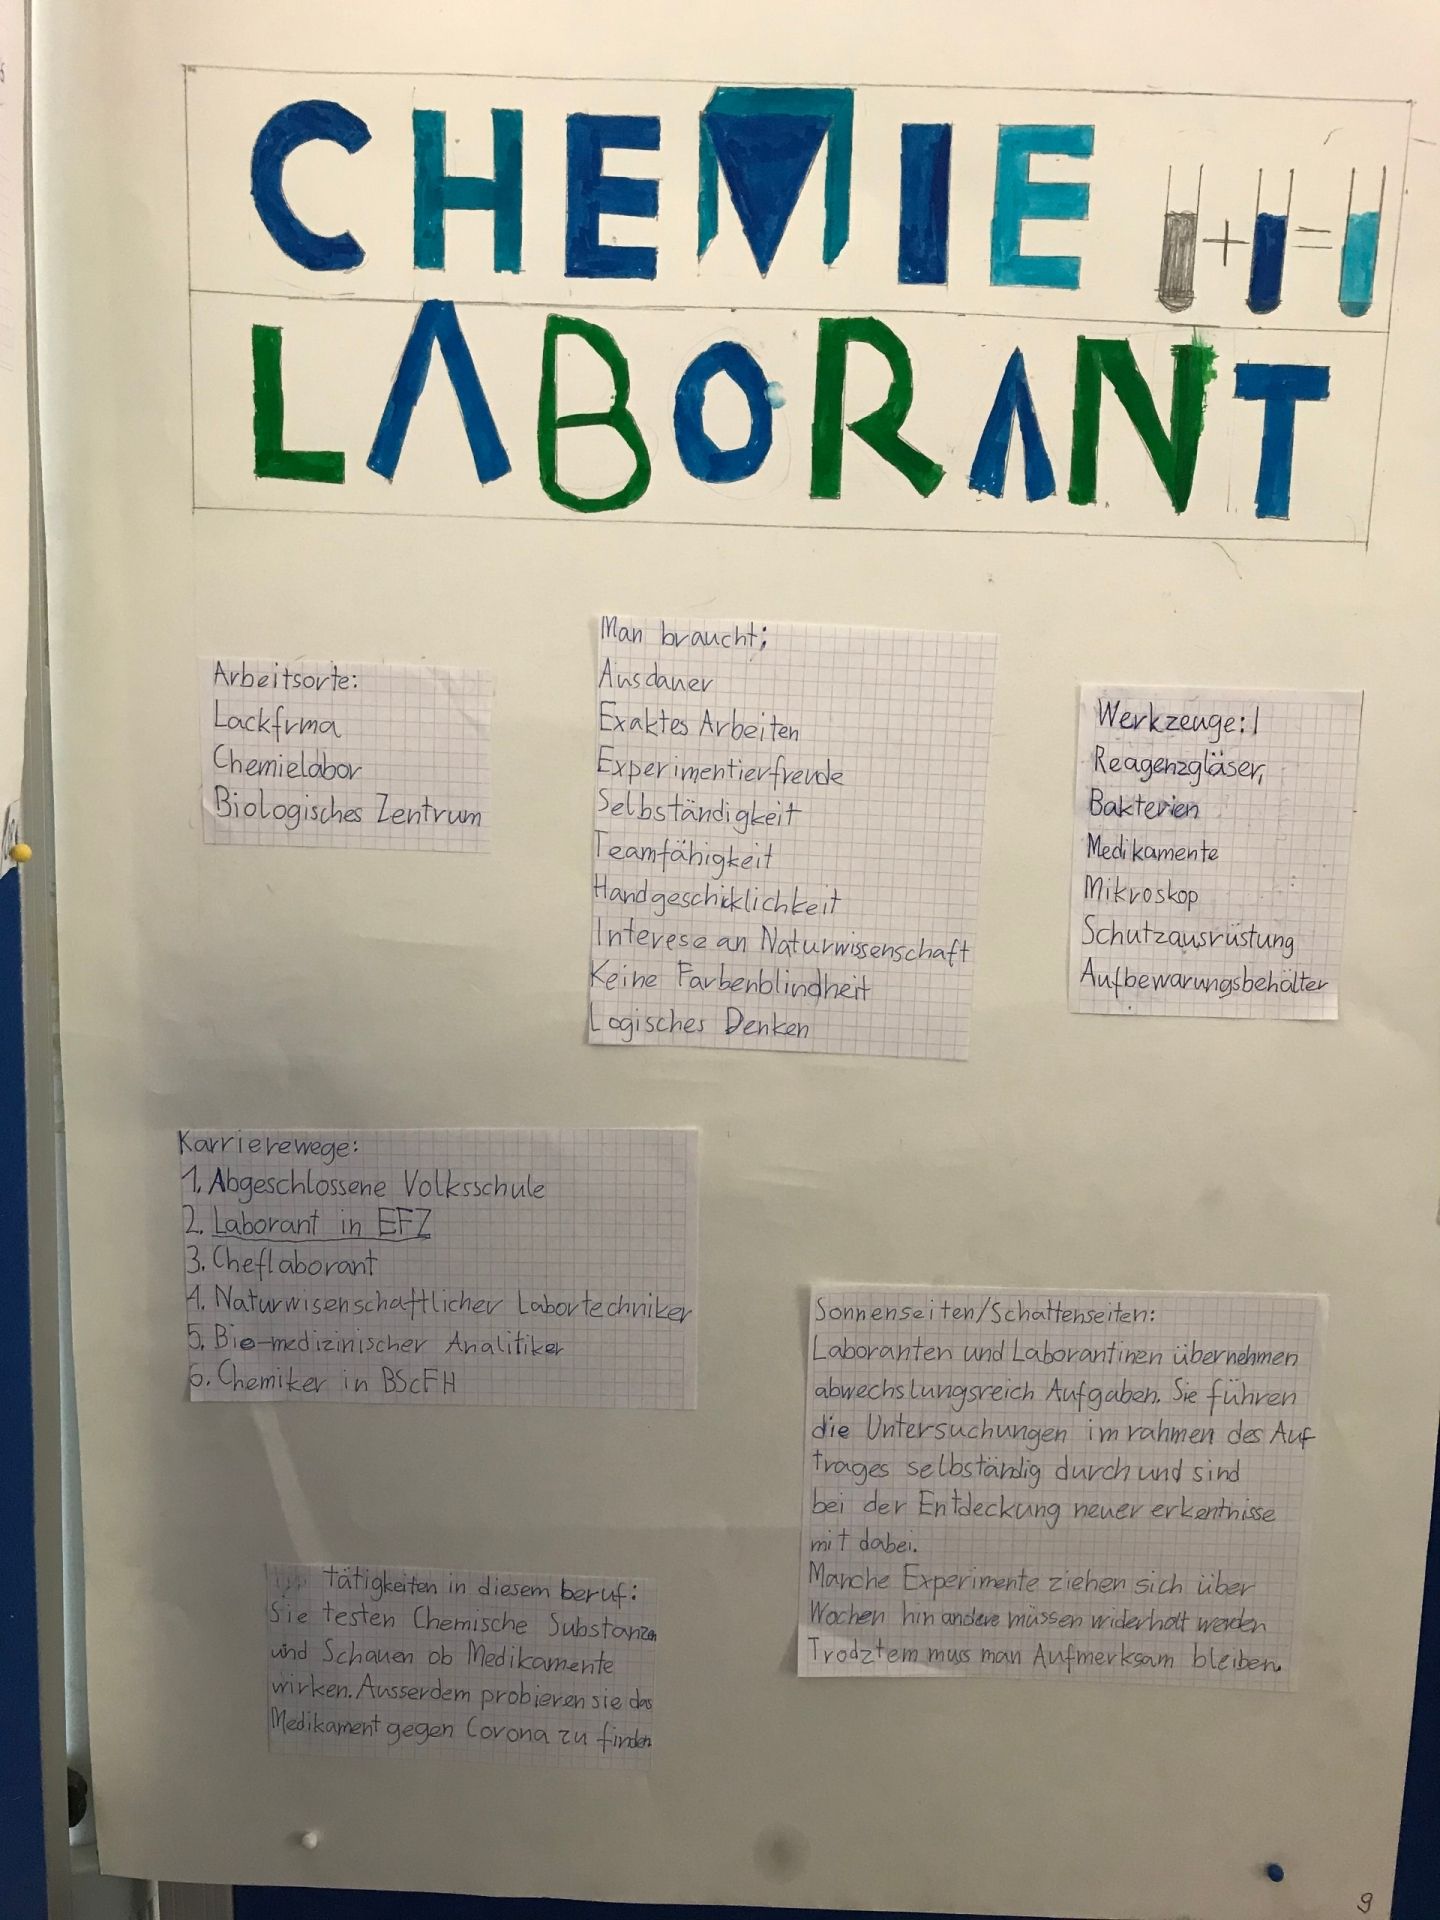 CHEMIE
+ =
LABORANT
Arbeitsorte:
Lackfrma
Chemielabor
Biologisches Zentrum
Man braucht;
Ausdauer
Exaktes Arbeiten
Experimentierfreude
Selbständigkeit
Teamfähigkeit
Handgeschicklichkeit
Interese an Naturwissenschaft
Keine Farbenblindheit
Logisches Denken
Werkzeuge:
Reagenzgläser,
Bakterien
Medikamente
Mikroskop
Schutzausrüstung
Aufbewarungsbehälter
Karrierewege:
1. Abgeschlossene Volksschule
2. Laborant in EFZ
3. Cheflaborant
4. Naturwisenschaftlicher Labortechniker
5. Bio-medizinischer Analitiker
6. Chemiker in BScFH
Sonnenseiten/Schattenseiten:
Laboranten und Laborantinen übernehmen
abwechslungsreich Aufgaben. Sie führen
die Untersuchungen im rahmen des Auf
trages selbständig durch und sind
bei der Entdeckung neuer erkentnisse
mit dabei.
Manche Experimente ziehen sich über
Wochen hin andere müssen widerholt werden
Trodztem muss man Aufmerksam bleiben.
tätigkeiten in diesem beruf:
Sie testen Chemische Substanzen
und Schauen ob Medikamente
wirken. Ausserdem probieren sie das
Medikament gegen Corona zu finden
9